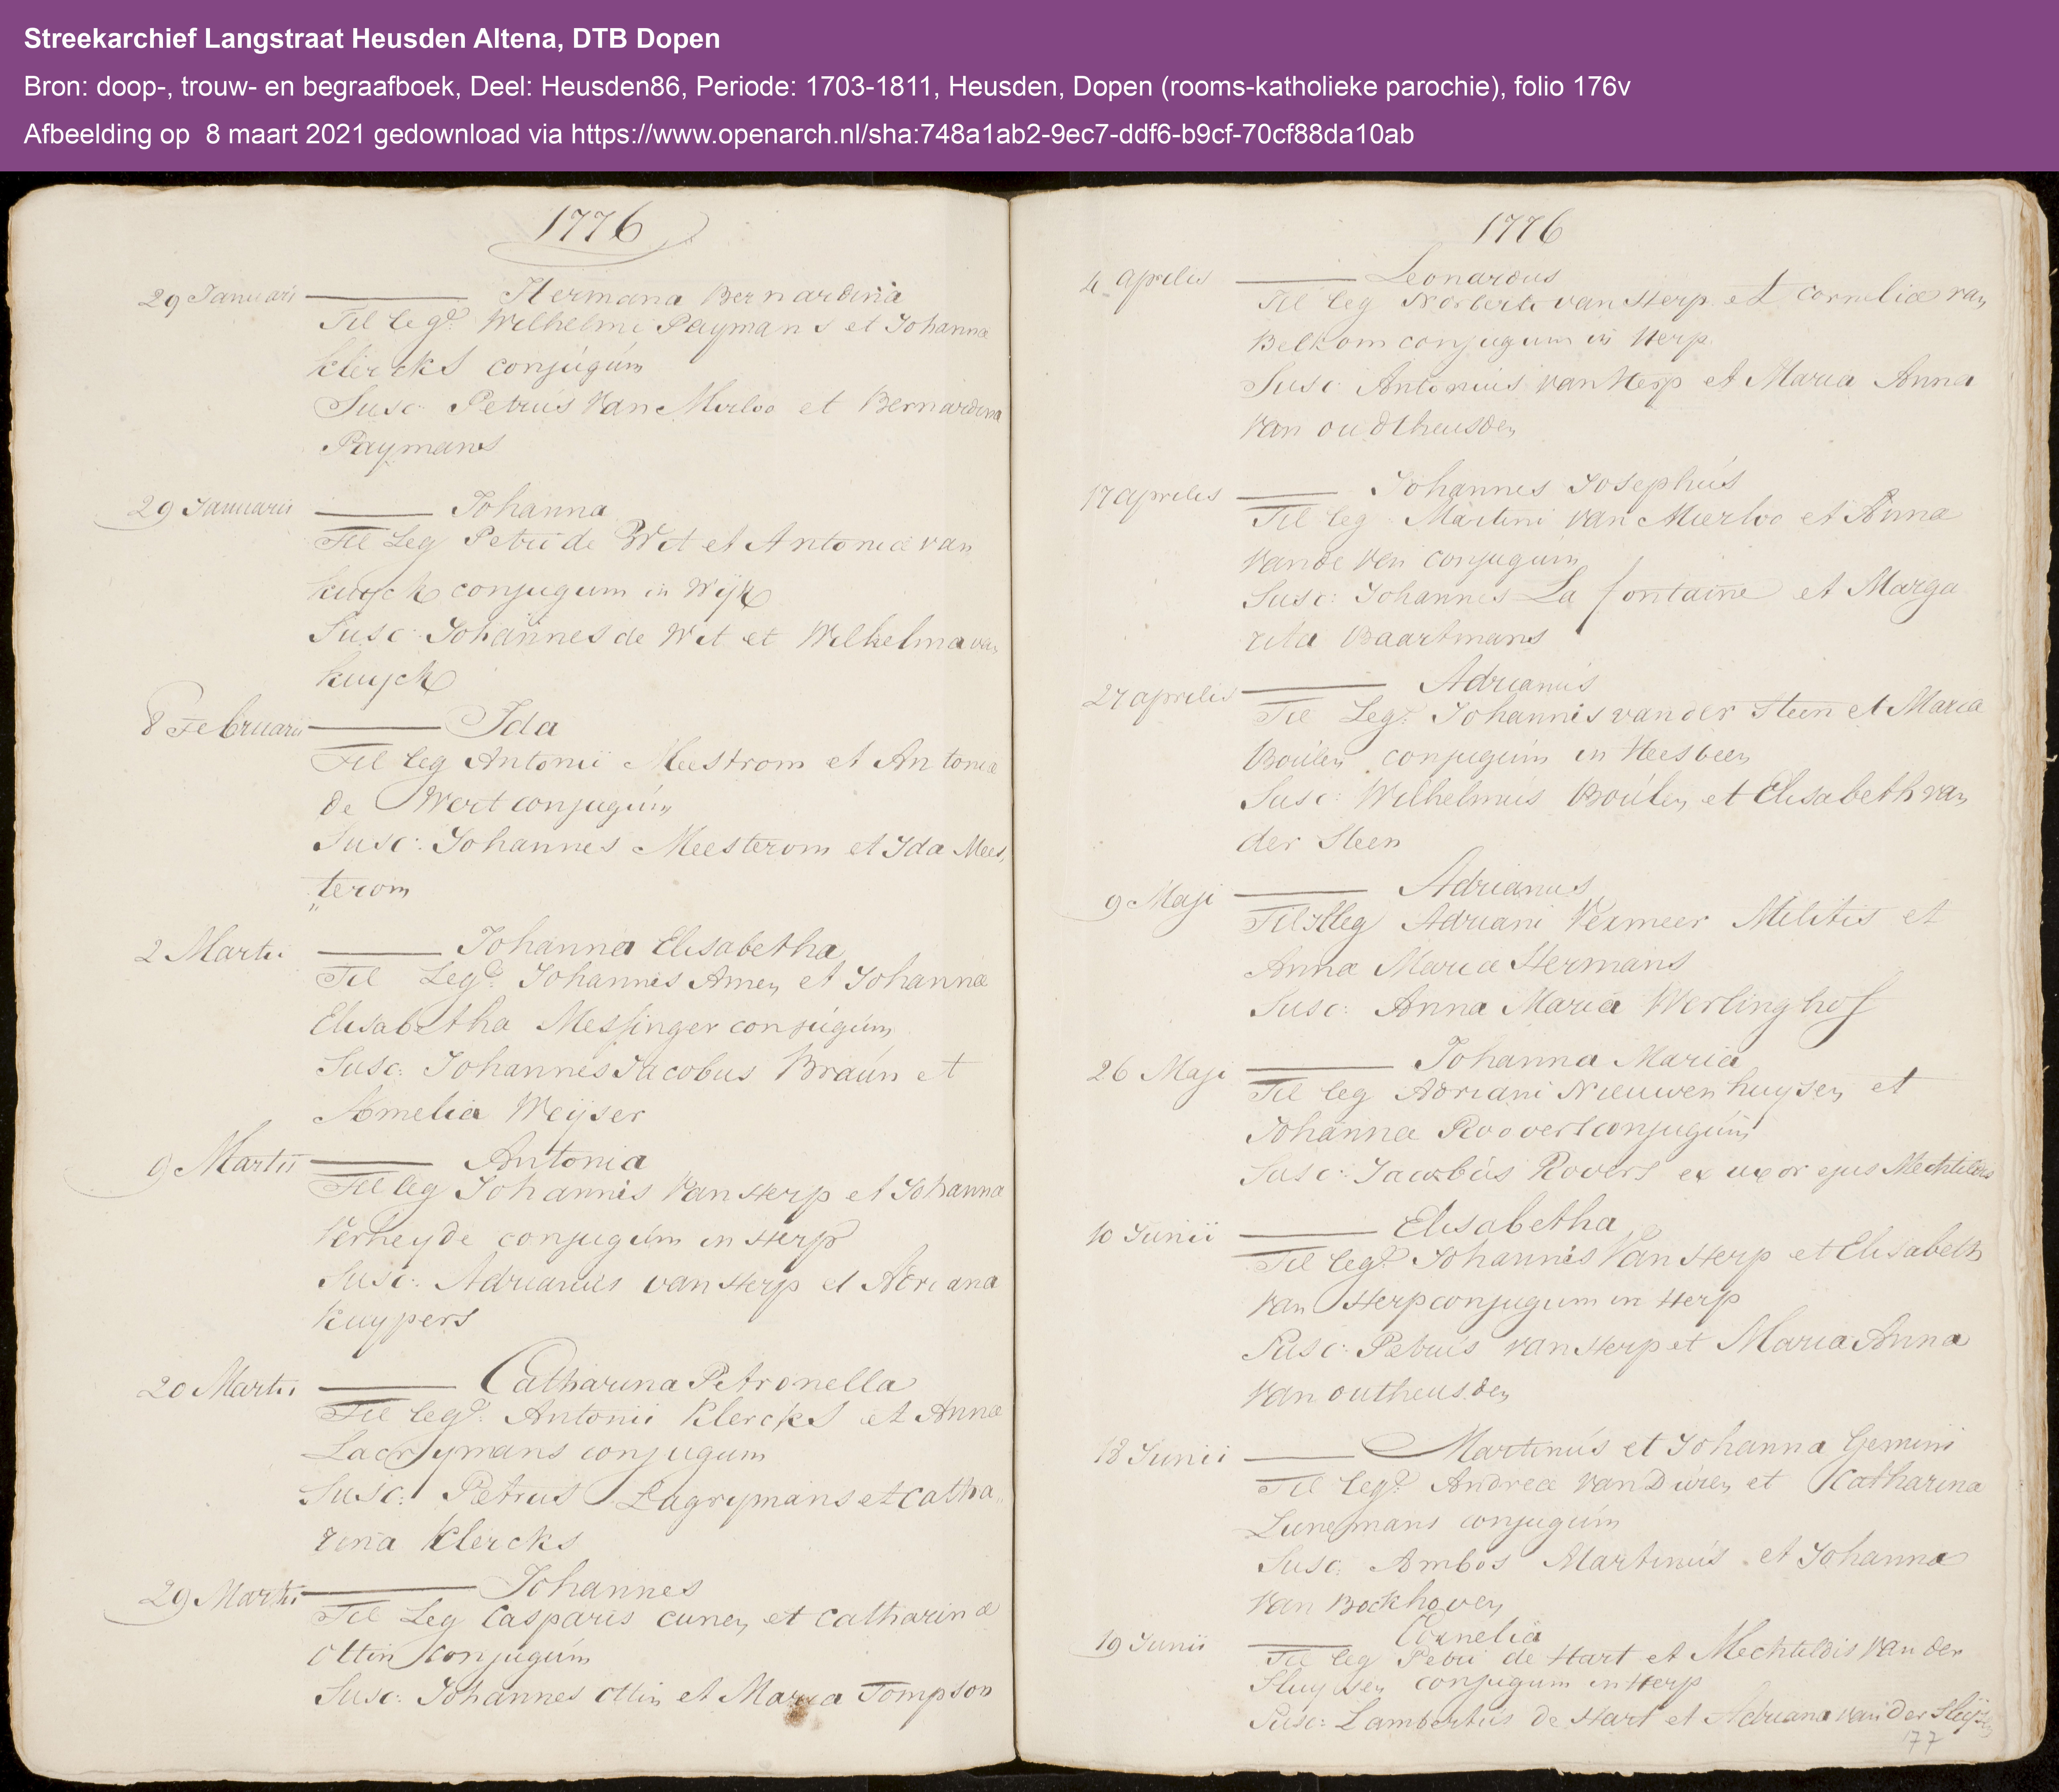 Streekarchief Langstraat Heusden Altena, DTB Dopen
Bron: doop-, trouw- en begraafboek, Deel: Heusden86, Periode: 1703-1811, Heusden, Dopen (rooms-katholieke parochie), folio 176v
Afbeelding op 8 maart 2021 gedownload via https://www.openarch.nl/sha:748a1ab2-9ec7-ddf6-b9cf-70cf88da10ab
1776
29 Januarii Hermana Bernardina
Fil leg: Wilhelmi Paymans et Johannæ
Klercks conjugúm
Susc: Petrús Van Mierloo et Bernardina
Paymans
29 Januarii Johanna
Fil Leg Petri de Wit et Antoniæ van
kuyck conjugum in Wijk
Susc: Johannes de Wit et Wilhelma van
kuyck
8 Februarii Ida
Fil leg Antonii Meestrom et Antoniæ
de Wert conjugúm
Susc: Johannes Meesterom et Ida Mees,
„terom
2 Martii Johanna Elisabetha
Fil Leg: Johannes Amen et Johannæ
Elisabetha Messinger conjúgúm
Susc: Johannes Jacobus Braún et
Amelia Weijser
9 Martii Antonia
Fil leg Johannis Van Herp et Johanna
Verheyde conjugúm in Herp
Susc: Adrianús van Herp et Adriana
Kuypers
20 Martii Catharina Petronella
Fil leg: Antonii Klercks et Annæ
Lacrymans conjugum
Susc: Petrus Lagrymans et Catha„
rina Klercks
29 Martii Johannes
Fil Leg Casparis cunen et Catharinæ
Ottin conjugúm
Susc: Johannes Ottin et Maria Tompson
1776
4 aprilis Leonardus
Fil leg Norberti van Herp et corneliæ van
Belkom conjugum in Herp.
Susc: Antoniús van Herp et Maria Anna
Van oudtheusden
17 aprilis Johannes Josephús
Fil leg Martini van Mierloo et Annæ
Vande Ven conjugúm
Susc: Johannes La fontaine et Marga
rita Baartmans
27 aprilis Adrianús
Fil Leg: Johannis van der Steen et Mariæ
Boúlen conjugúm in Heesbeen
Susc: Wilhelmús Boúlen et Elisabeth van
der Steen
9 Maji Adrianus
Fil Illeg Adriani Vermeer Militis et
Annæ Mariæ Hermans
Susc: Anna Maria Werlinghof
26 Maji Johanna Maria
Fil leg Adriani Nieuwenhuysen et
Johannæ Roovers conjugúm
Susc: Jacobús Rovers ex uxor ejus Mechtildis
10 Junii Elisabetha
Fil leg: Johannis Van Herp et Elisabeth
Van Herp conjugum in Herp
Susc: Petrús van Herp et Maria Anna
Van outheusden
18 Junii Martinús et Johanna Gemini
Fil leg: Andreæ Van Duren et Catharina
Lunemans conjugúm
Susc: Ambos Martinús et Johanna
Van Bockhoven
19 Junii Cornelia
Fil leg Petri de Hart et Mechtildis Van der
Sluysen conjugum in Herp
Susc: Lambertús de Hart et Adriana van der
177